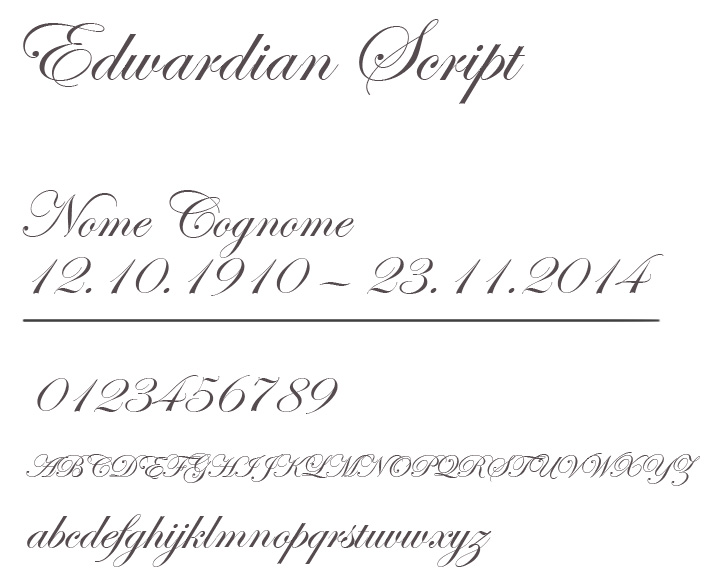 Edwardian Script
Nome Cognome
12.10.1910 – 23.11.2014
0123456789
ABCDEFGHIJKLMNOPQRSTUVWXYZ
abcdefghijklmnopqrstuvwxyz